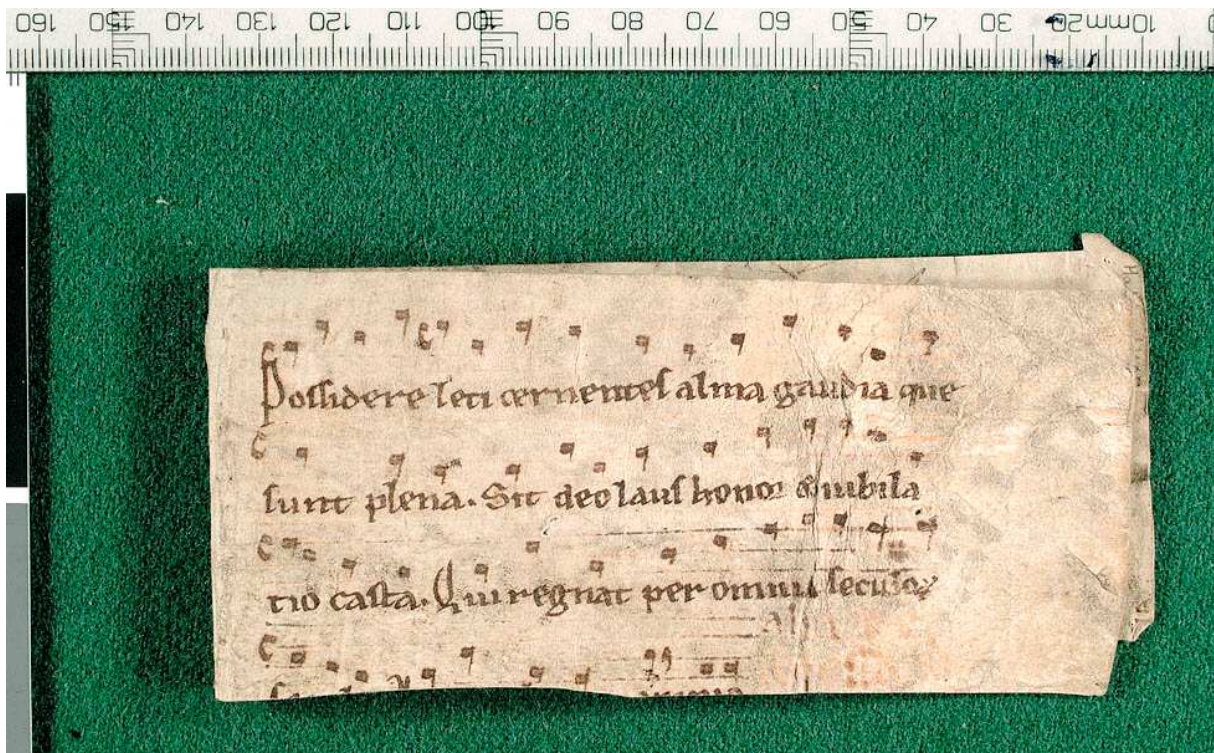 160 150 140 130 120 110 100 90 80 70 60 50 40 30 10mm20 10
Possidere leti cernentes alma gaudia que
sunt plena. Sit deo laus honor & iubila
tio casta. Qui regnat per omnia seculoꝝ